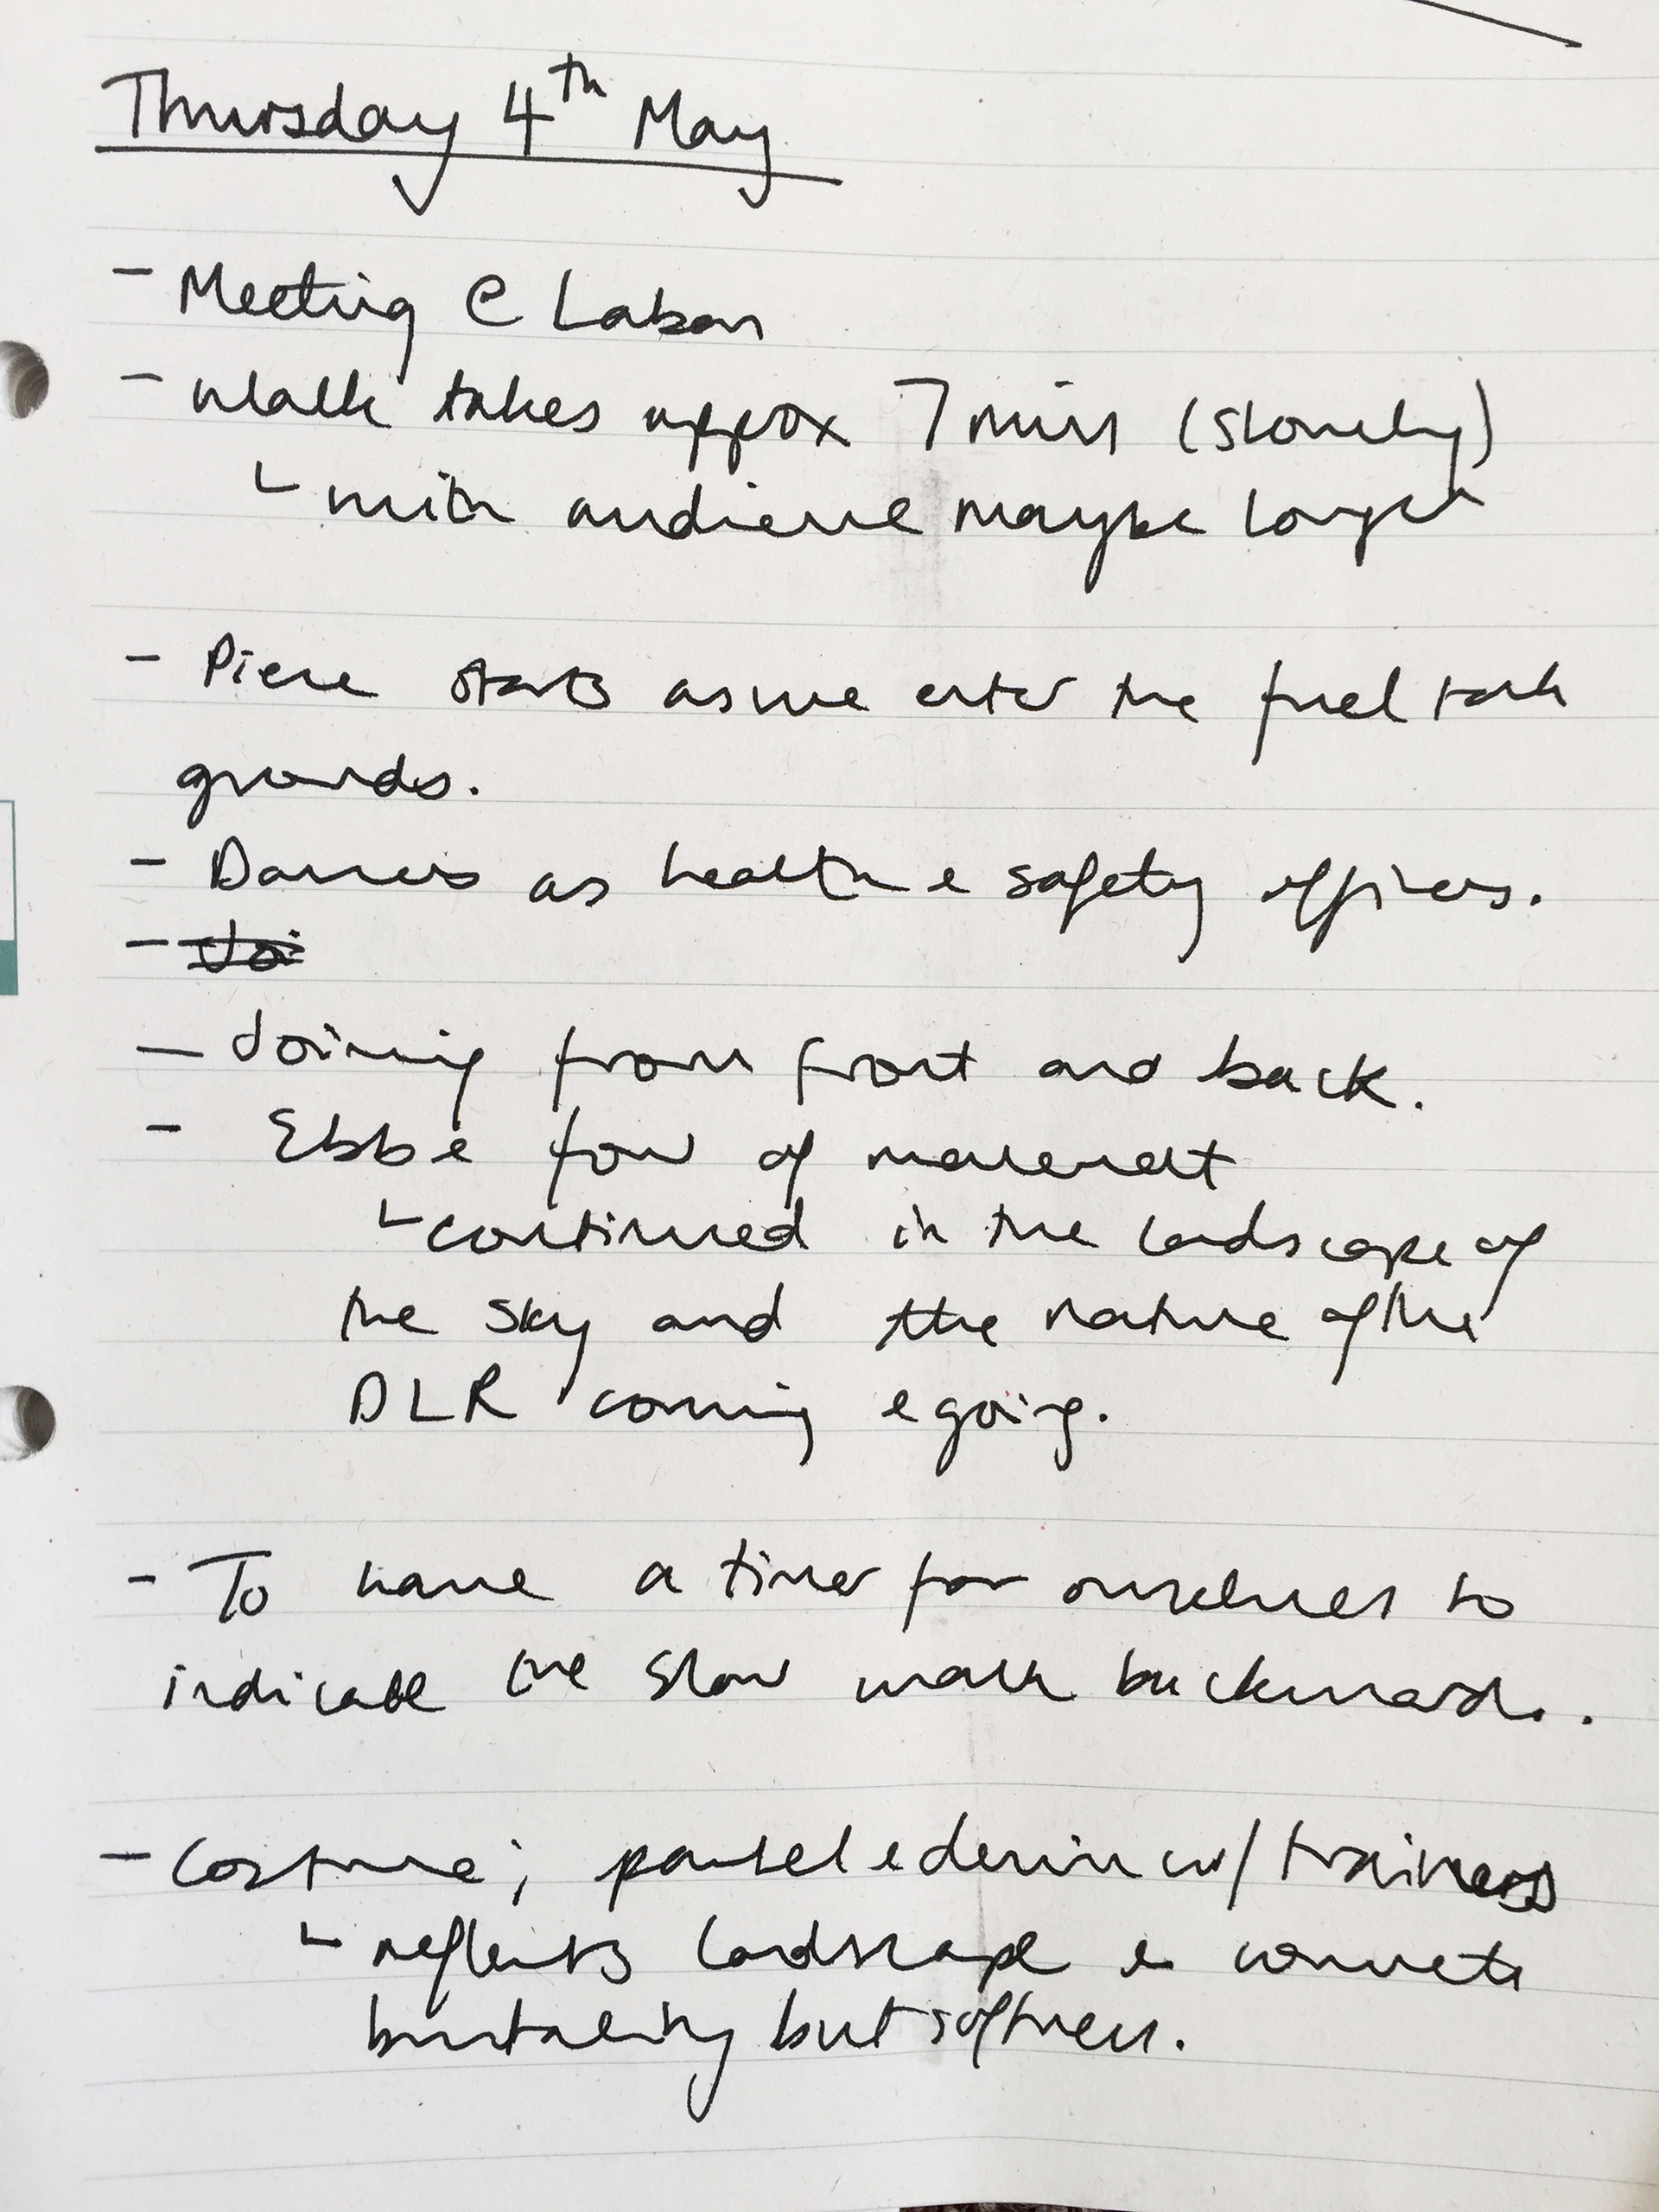 Thursday 4th May
- Meeting @ Laban
- Walk takes approx 7 mins (slowly)
↳ with audience maybe longer
- Piece starts as we enter the fuel tank
grounds.
- Dancers as health & safety officers.
- Joi
- Joining from front and back.
- Ebb & fow of movement
↳ continued in the landscape of
the sky and the nature of the
DLR coming & going.
- To have a timer for ourselves to
indicate the slow walk backwards.
- Costume; pastel & denim w/ trainers
↳ reflects landscape & concrete
brutality but softness.